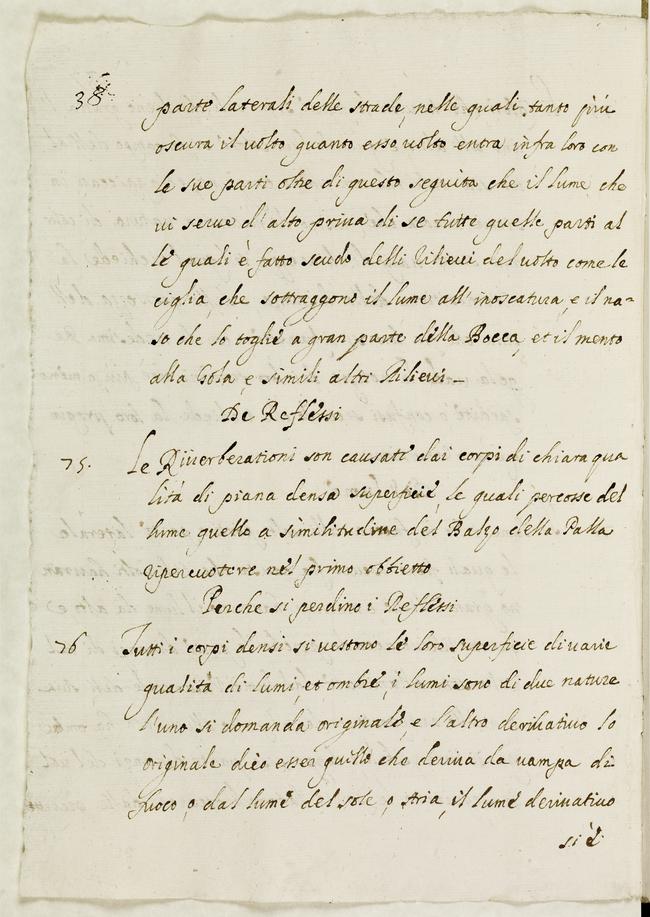 38
parte laterali delle strade, nelle quali tanto più
oscura il volto quanto esso volto entra infra loro con
le sue parti oltre di questo seguita che il lume che
vi serue d'alto priua di se tutte quelle parti al
le quali è fatto scudo delli rilieui del uolto come le
ciglia, che sottraggono il lume all'inoscatura, e il na=
so che lo toglie a gran parte della Bocca, et il mento
alla Gola, e simili altri Rilieui_
De Reflessi
75. Le Riuerberationi son causate dai corpi di chiara qua
lità di piana densa superficie, le quali percosse del
lume quello a similitudine del Balzo della Palla
ripercuotere nel primo obbietto
Perche si perdino i Reflessi
76 Tutti i corpi densi si uestono le loro superficie di uarie
qualità di lumi, et ombre, i lumi sono di due nature
l'uno si domanda originale, e l'altro deriuatiuo lo
originale dico esser quello che deriua da uampa di
fuoco, o dal lume del sole, o Aria, il lume deriuatiuo
si è